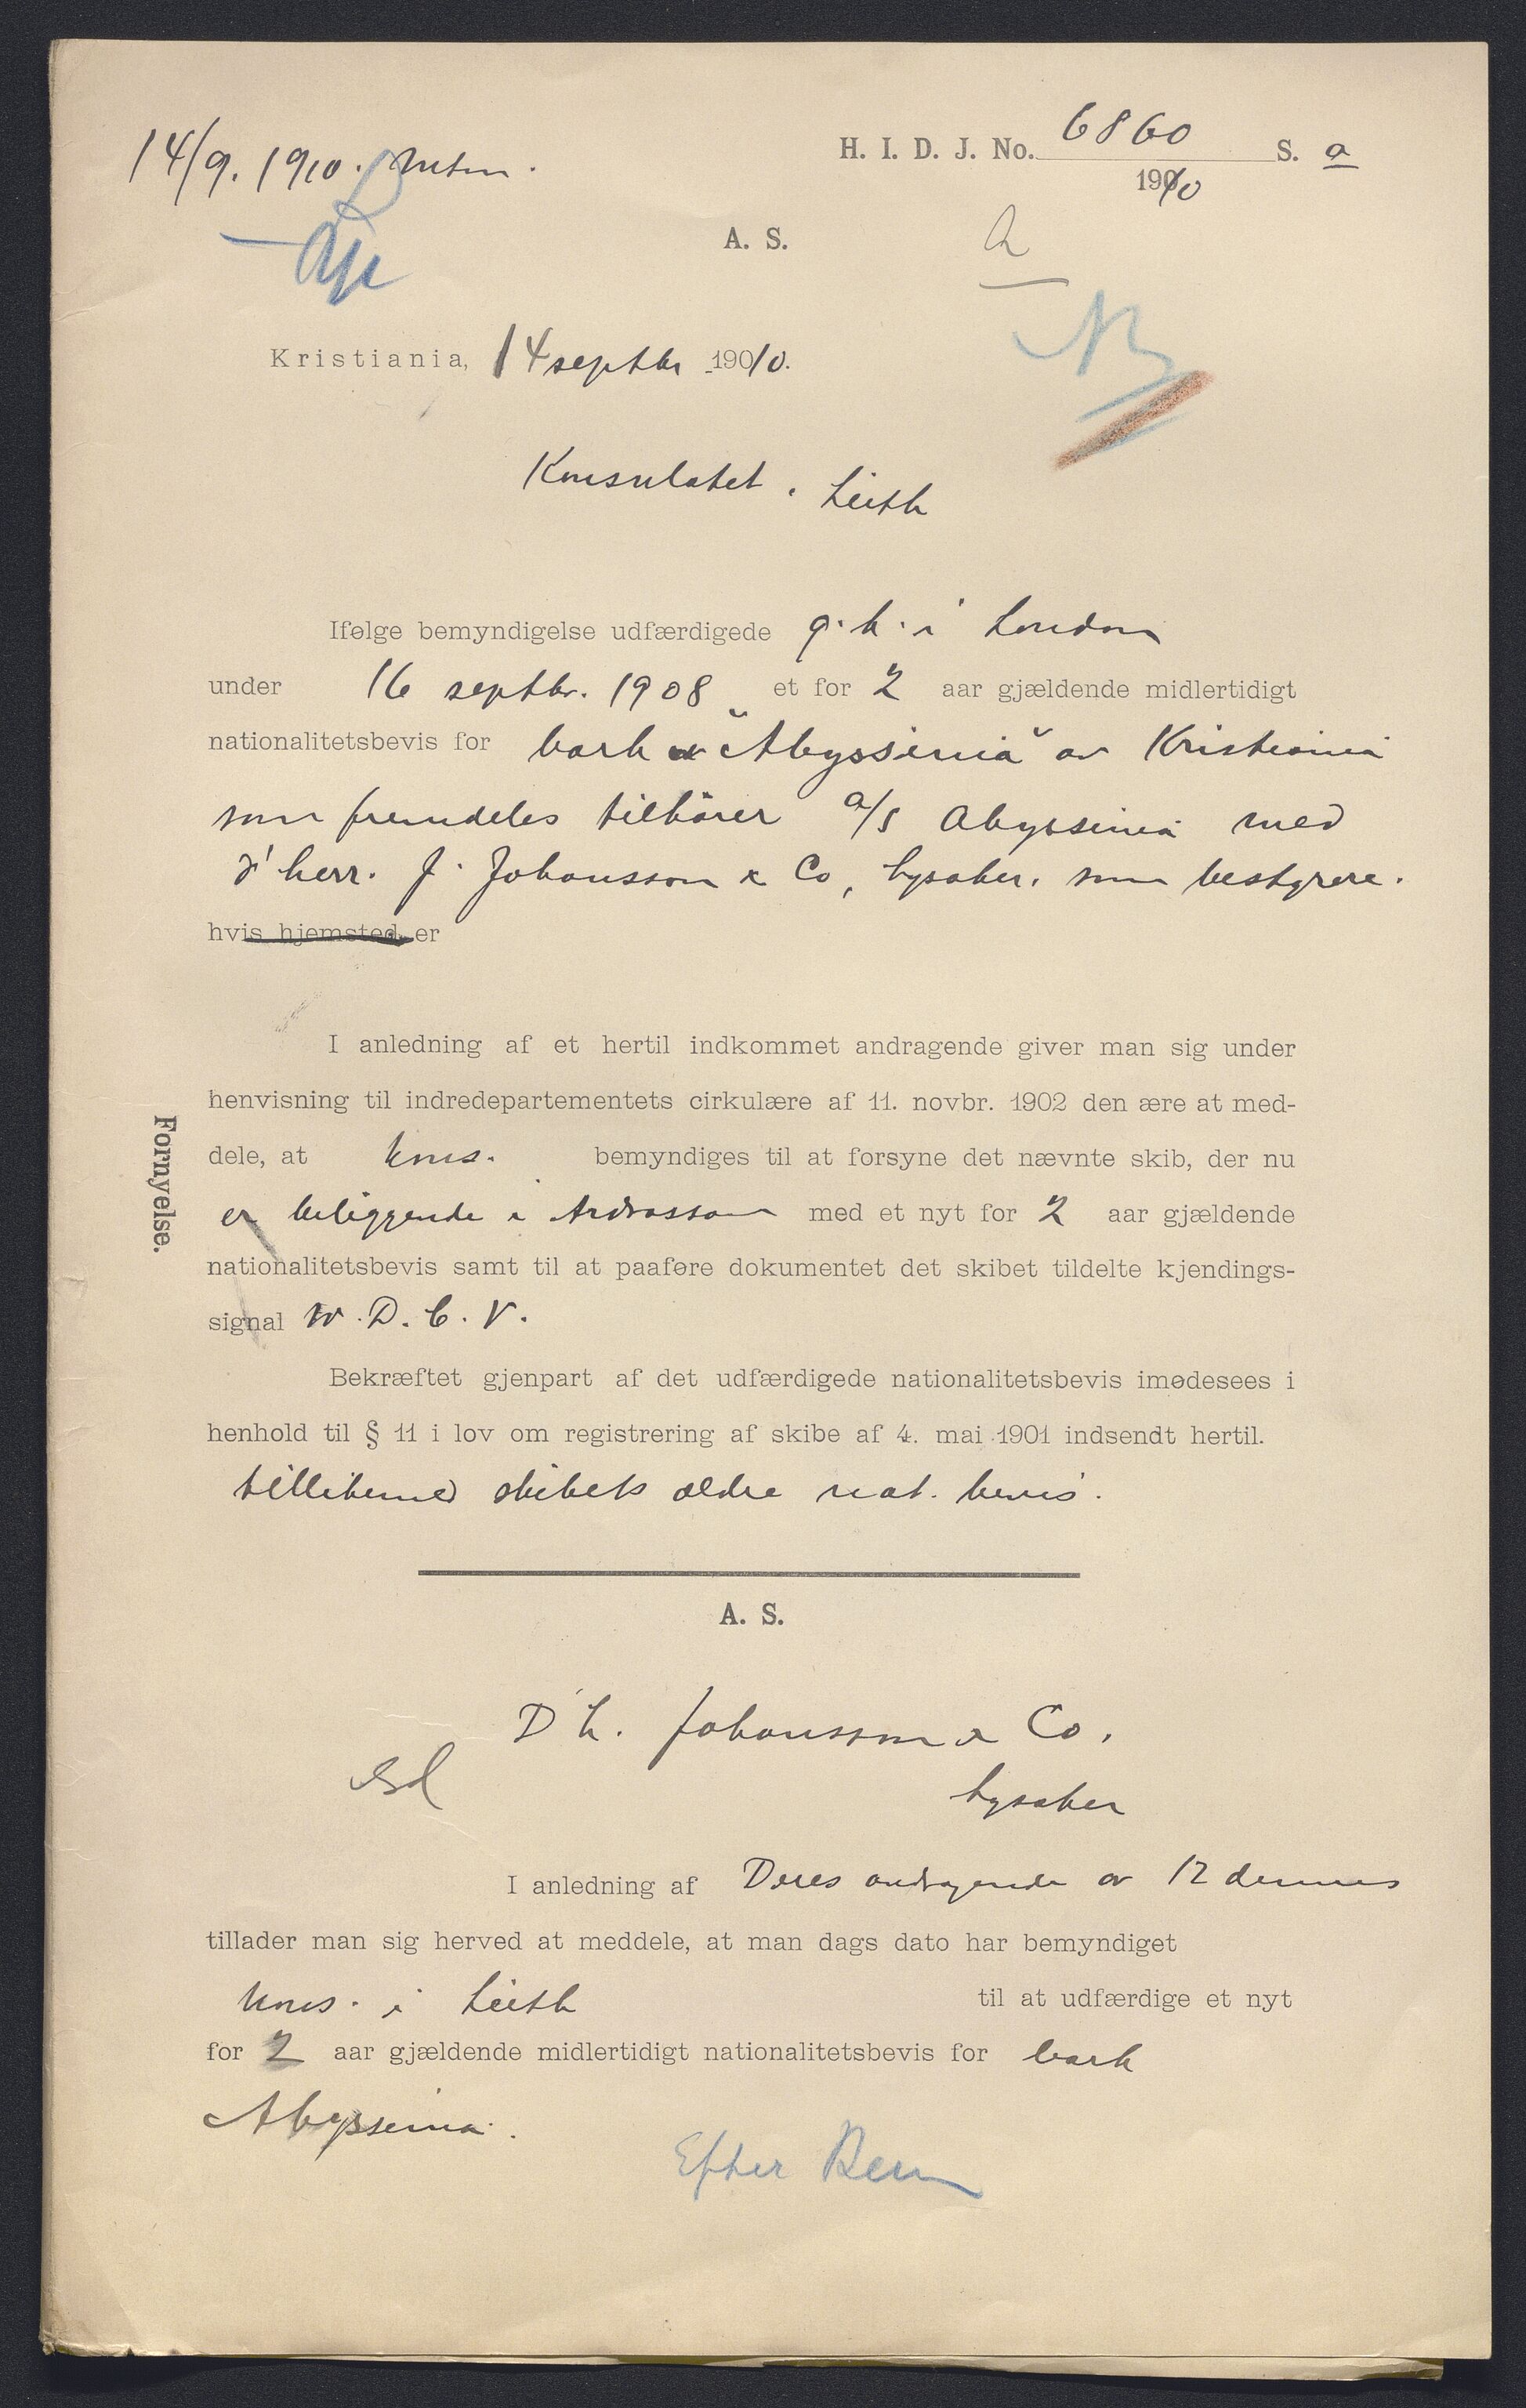 14/9. 1910.
H. I. D. J. No. 6860 S. a
1910
A. S.
Kristiania, 14 septbr 1910.
Konsulatet i Leith
Ifølge bemyndigelse udfærdigede g. k. i London
under 16 septbr. 1908 et for 2 aar gjældende midlertidigt
nationalitetsbevis for bark "Abyssinia" av Kristiania
som fremdeles tilhører a/s Abyssinia med
d'herr. J. Johansson & Co, Lysaker, som bestyrere.
hvis hjemsted er
Fornyelse.
I anledning af et hertil indkommet andragende giver man sig under
henvisning til indredepartementets cirkulære af 11. novbr. 1902 den ære at med-
dele, at kons. bemyndiges til at forsyne det nævnte skib, der nu
er beliggende i Ardrossan med et nyt for 2 aar gjældende
nationalitetsbevis samt til at paaføre dokumentet det skibet tildelte kjendings-
signal W. D. C. V.
Bekræftet gjenpart af det udfærdigede nationalitetsbevis imødesees i
henhold til § 11 i lov om registrering af skibe af 4. mai 1901 indsendt hertil.
tillikemed skibets ældre nat. bevis.
A. S.
D'h. Johansson & Co.
Lysaker
I anledning af Deres andragende av 12 dennes
tillader man sig herved at meddele, at man dags dato har bemyndiget
kons. i Leith til at udfærdige et nyt
for 2 aar gjældende midlertidigt nationalitetsbevis for bark
Abyssinia.
Efter Bem